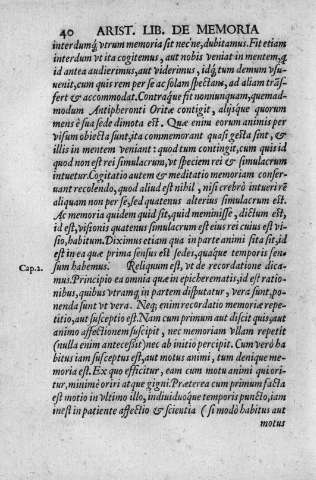 40 ARIST. LIB. DE MEMORIA
interdumq́; vtrum memoria sit necne, dubitamus. Fit etiam
interdum vt ita cogitemus, aut nobis veniat in mentem, q́
id antea audierimus, aut viderimus, idq́; tum demum vsu-
uenit, cum quis rem per se ac solam spectans, ad aliam trāſ-
fert & accommodat. Contraq́ue fit nonnunquam, quemad-
modum Antipheronti Oritæ contigit, alijsque quorum
mens è sua sede dimota est. Quæ enim eorum animis per
visum obiecta sunt, ita commemorant quasi gesta sint, &
illis in mentem veniant: quod tum contingit, cum quis id
quod non est rei simulacrum, vt speciem rei & simulacrum
intuetur. Cogitatio autem & meditatio memoriam conser-
uant recolendo, quod aliud est nihil, nisi crebrò intueri rē
aliquam non per se, sed quatenus alterius simulacrum est.
Ac memoria quidem quid sit, quid meminisse, dictum est,
id est, visionis quatenus simulacrum est eius rei cuius est vi-
sio, habitum. Diximus etiam qua in parte animi sita sit, id
est in ea quæ prima sensus est sedes, quaq́ue temporis sen-
Cap. 2. sum habemus. Reliquum est, vt de recordatione dica-
mus. Principio ea omnia quæ in epicherematis, id est ratio-
nibus, quibus vtramq; in partem disputatur, vera sunt, po-
nenda sunt vt vera. Neq; enim recordatio memoriæ repe-
titio, aut susceptio est. Nam cum primum aut discit quis, aut
animo affectionem suscipit, nec memoriam vllam repetit
(nulla enim antecessit) nec ab initio percipit. Cum verò ha
bitus iam susceptus est, aut motus animi, tum denique me-
moria est. Ex quo efficitur, eam cum motu animi quiori-
tur, minimè oriri atque gigni. Præterea cum primum facta
est motio in vltimo illo, indiuiduoq́ue temporis puncto, iam
inest in patiente affectio & scientia (si modò habitus aut
motus